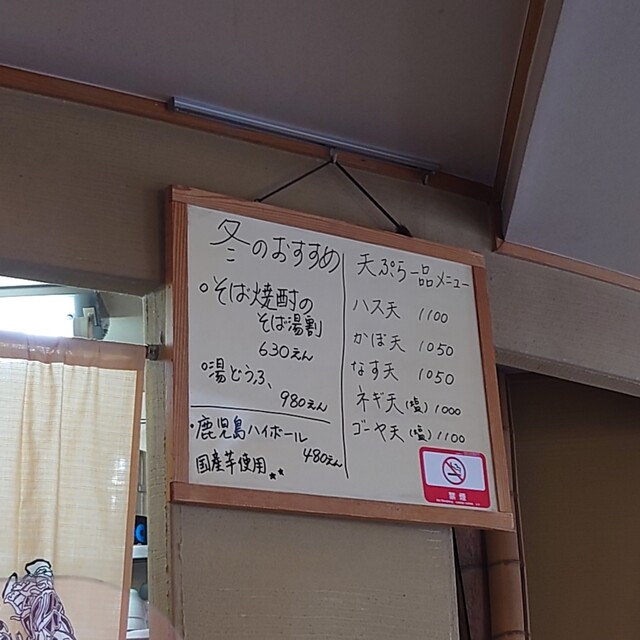 冬のおすすめ
○そば焼酎の
そば湯割
630えん
○湯どうふ、
980えん
・鹿児島ハイボール
480えん
国産芋使用
天ぷら一品メニュー
ハス天 1100
かぼ天 1050
なす天 1050
ネギ天(塩) 1000
ゴーヤ天(塩) 1100
禁煙